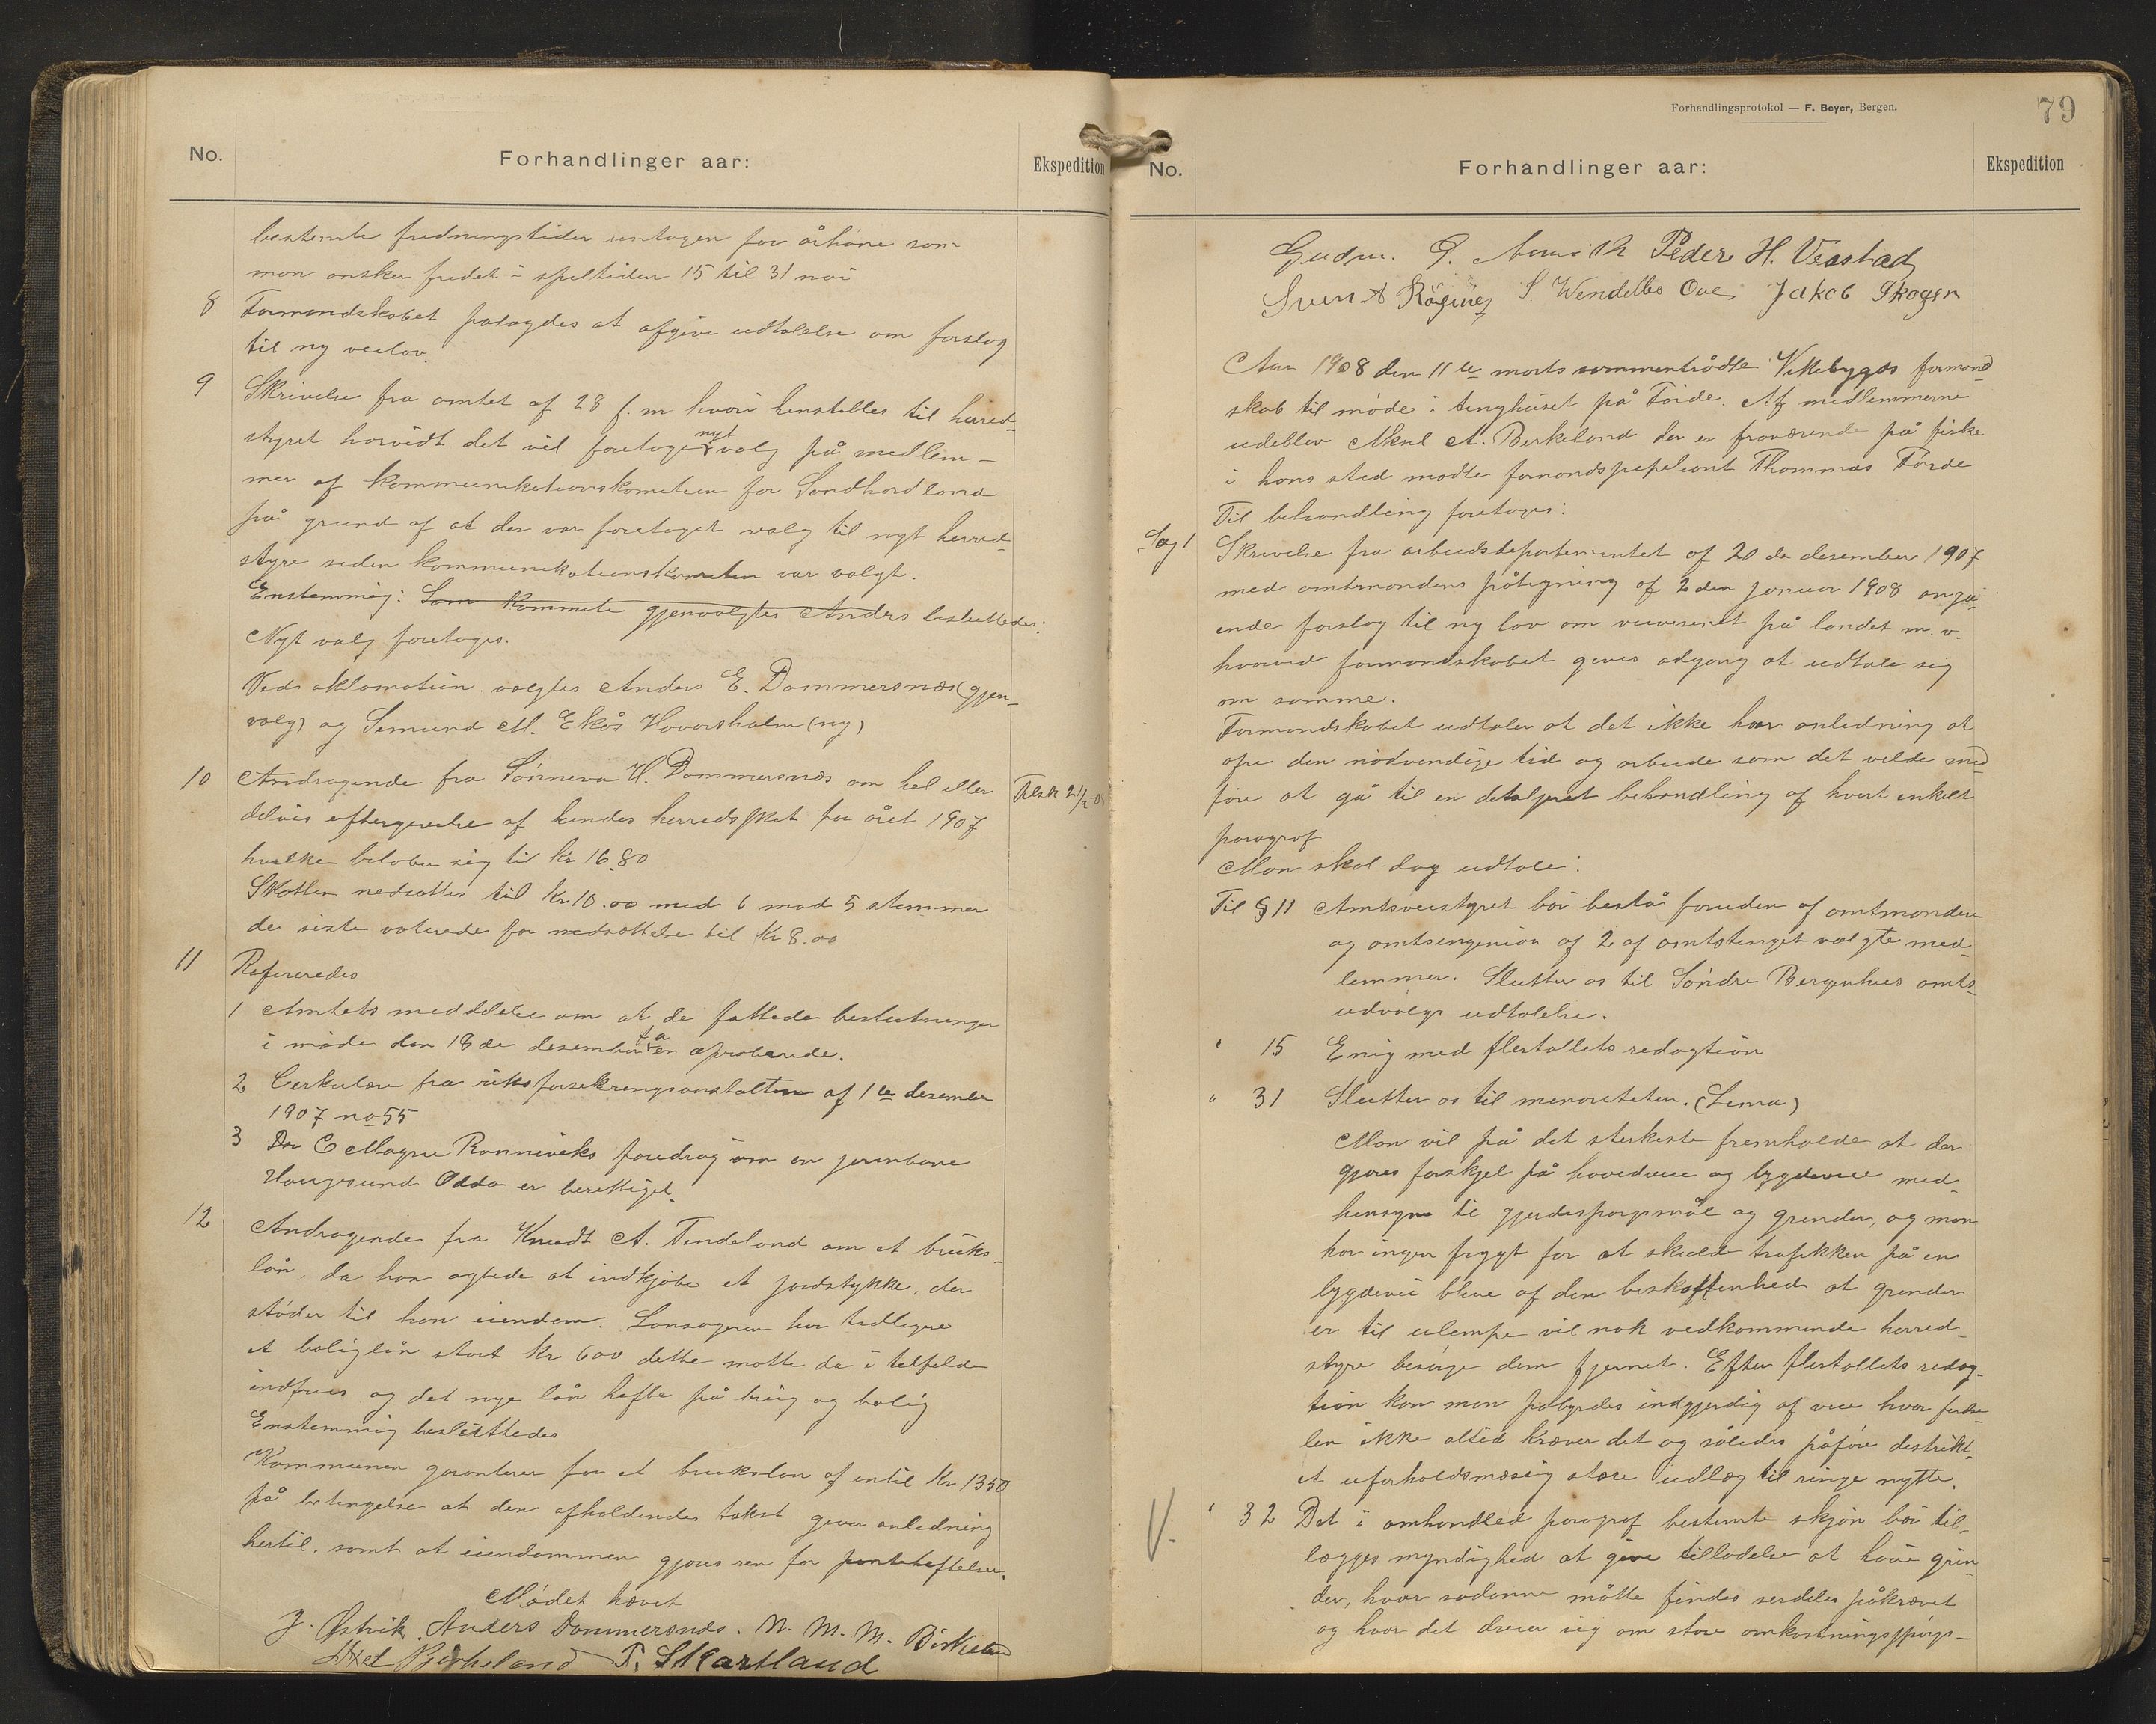 No.
Forhandlinger aar:
Ekspedition
bestemte fredningstider untagen for århane som
man ønsker fredet i speltiden 15 til 31 mai
8 Formandskabet palagdes at afgive udtalelse om forslag
til ny veilov.
9 Skrivelse fra amtet af 28 f. m hvori henstilles til herred-
styret horvidt det vil foretage nyt valg på medlem-
mer af kommunikationskomiteen for Søndhordland
på grund af at der var foretaget valg til nyt herred-
styre siden kommunikationskomiteen var valgt.
Enstemmig: Som Kommite gjenvalgtes Anders besluttedes:
Nyt valg foretages.
Ved aklamation valgtes Anders E. Dommersnæs (gjen-
valg) og Semund M. Ekås Hovarsholm (ny)
10 Andragende fra Sønneva H. Dommersnæs om hel eller
delvis eftergivelse af hendes herredsskat for året 1907
hvilke beløber sig til kr 16.80
Skatten nedsattes til Kr 10.00 med 6 mod 5 stemmer
de siste voterede for nedsættelse til Kr 8.00
11 Refereredes
1 Amtets meddelelse om at de fattede beslutninger
i møde den 18de desember f a er aprobrede.
2 Cerkulære fra riksforsekringsanstalten af 1ste desember
1907 no 55
3 Dr C Magne Rønneviks foredrag om en jernbane
Haugesund Odda er berettiget.
12 Andragende fra Knudt A. Tendeland om et bruks-
lån, da han agtede at indkjøbe et jordstykke, der
støder til hans eiendom. Lånsøgeren har tidligere
et boliglån stort kr 600 dette måtte da i telfelde
indfries og det nye lån hefte på brug og bolig
Enstemmig besluttedes
Kommunen garanterer for et brukslån af intil Kr 1350
på betingelse at den afholdendes takst giver anledning
hertil. samt at eiendommen gjøres ren for panteheftelser.
Mødet hævet
J. Østvik. Anders Dommersnæs. N. M. M. Birkeland
Axel Birkeland T. Skartland
Forhandlingsprotokol — F. Beyer, Bergen.
79
No.
Forhandlinger aar:
Ekspedition
Gudm. G. Peder H. Veastad
Svein A S. Wendelbo Oue Jakob Skogen
Aar 1908 den 11te marts sammentrådte Vikebygds formand-
skab til møde i tinghuset på Førde. Af medlemmerne
udeblev Aksel A. Berkeland der er fraværende på fiske
i hans sted mødte formandssupleant Thommas Førde
Til behandling foretoges:
Sag 1 Skrivelse fra arbeidsdepartementet af 20de desember 1907
med amtmandens påtegning af 2den januar 1908 angå-
ende forslag til ny lov om veivesenet på landet m. v.
hvorved formandskabet gives adgang at udtale sig
om samme.
Formandskabet udtaler at det ikke har anledning at
ofre den nødvendige tid og arbeide som det vilde med
føre at gå til en detaljeret behandling af hvert enkelt
paragraf
Man skal dog udtale:
Til § 11 Amtsveistyret bør bestå foruden af amtmanden
og amtsingeniør af 2 af amtstinget valgte med-
lemmer. Slutter os til Søndre Bergenhus amts-
udvalgs udtalelse.
" 15 Enig med flertallets redagtion
" 31 Slutter os til menoriteten. (Lema)
Man vil på det sterkeste fremholde at der
gjøres forskjel på hovedveie og bygdeveie med-
hensyn til gjerdesspørsmål og grinder, og man
har ingen frygt for at skulde trafikken på en
bygdevei blive af den beskaffenhed at grinder
er til ulempe vil nok vedkommende herred-
styre besørge dem fjernet. Efter flertallets redag-
tion kan man påbyrdes indgjerdig af veie hvor ferdse-
len ikke altid kræver det og således påføre destrikt-
et uforholdsmæsig store udlæg til ringe nytte.
" 32 Det i omhandled paragraf bestemte skjøn bør til-
lægges myndighed at give tilladelse at have grin-
der, hvor sådanne måtte findes serdeles påkrævet
og hvor det dreier sig om store omkostningsspørgs-
V.